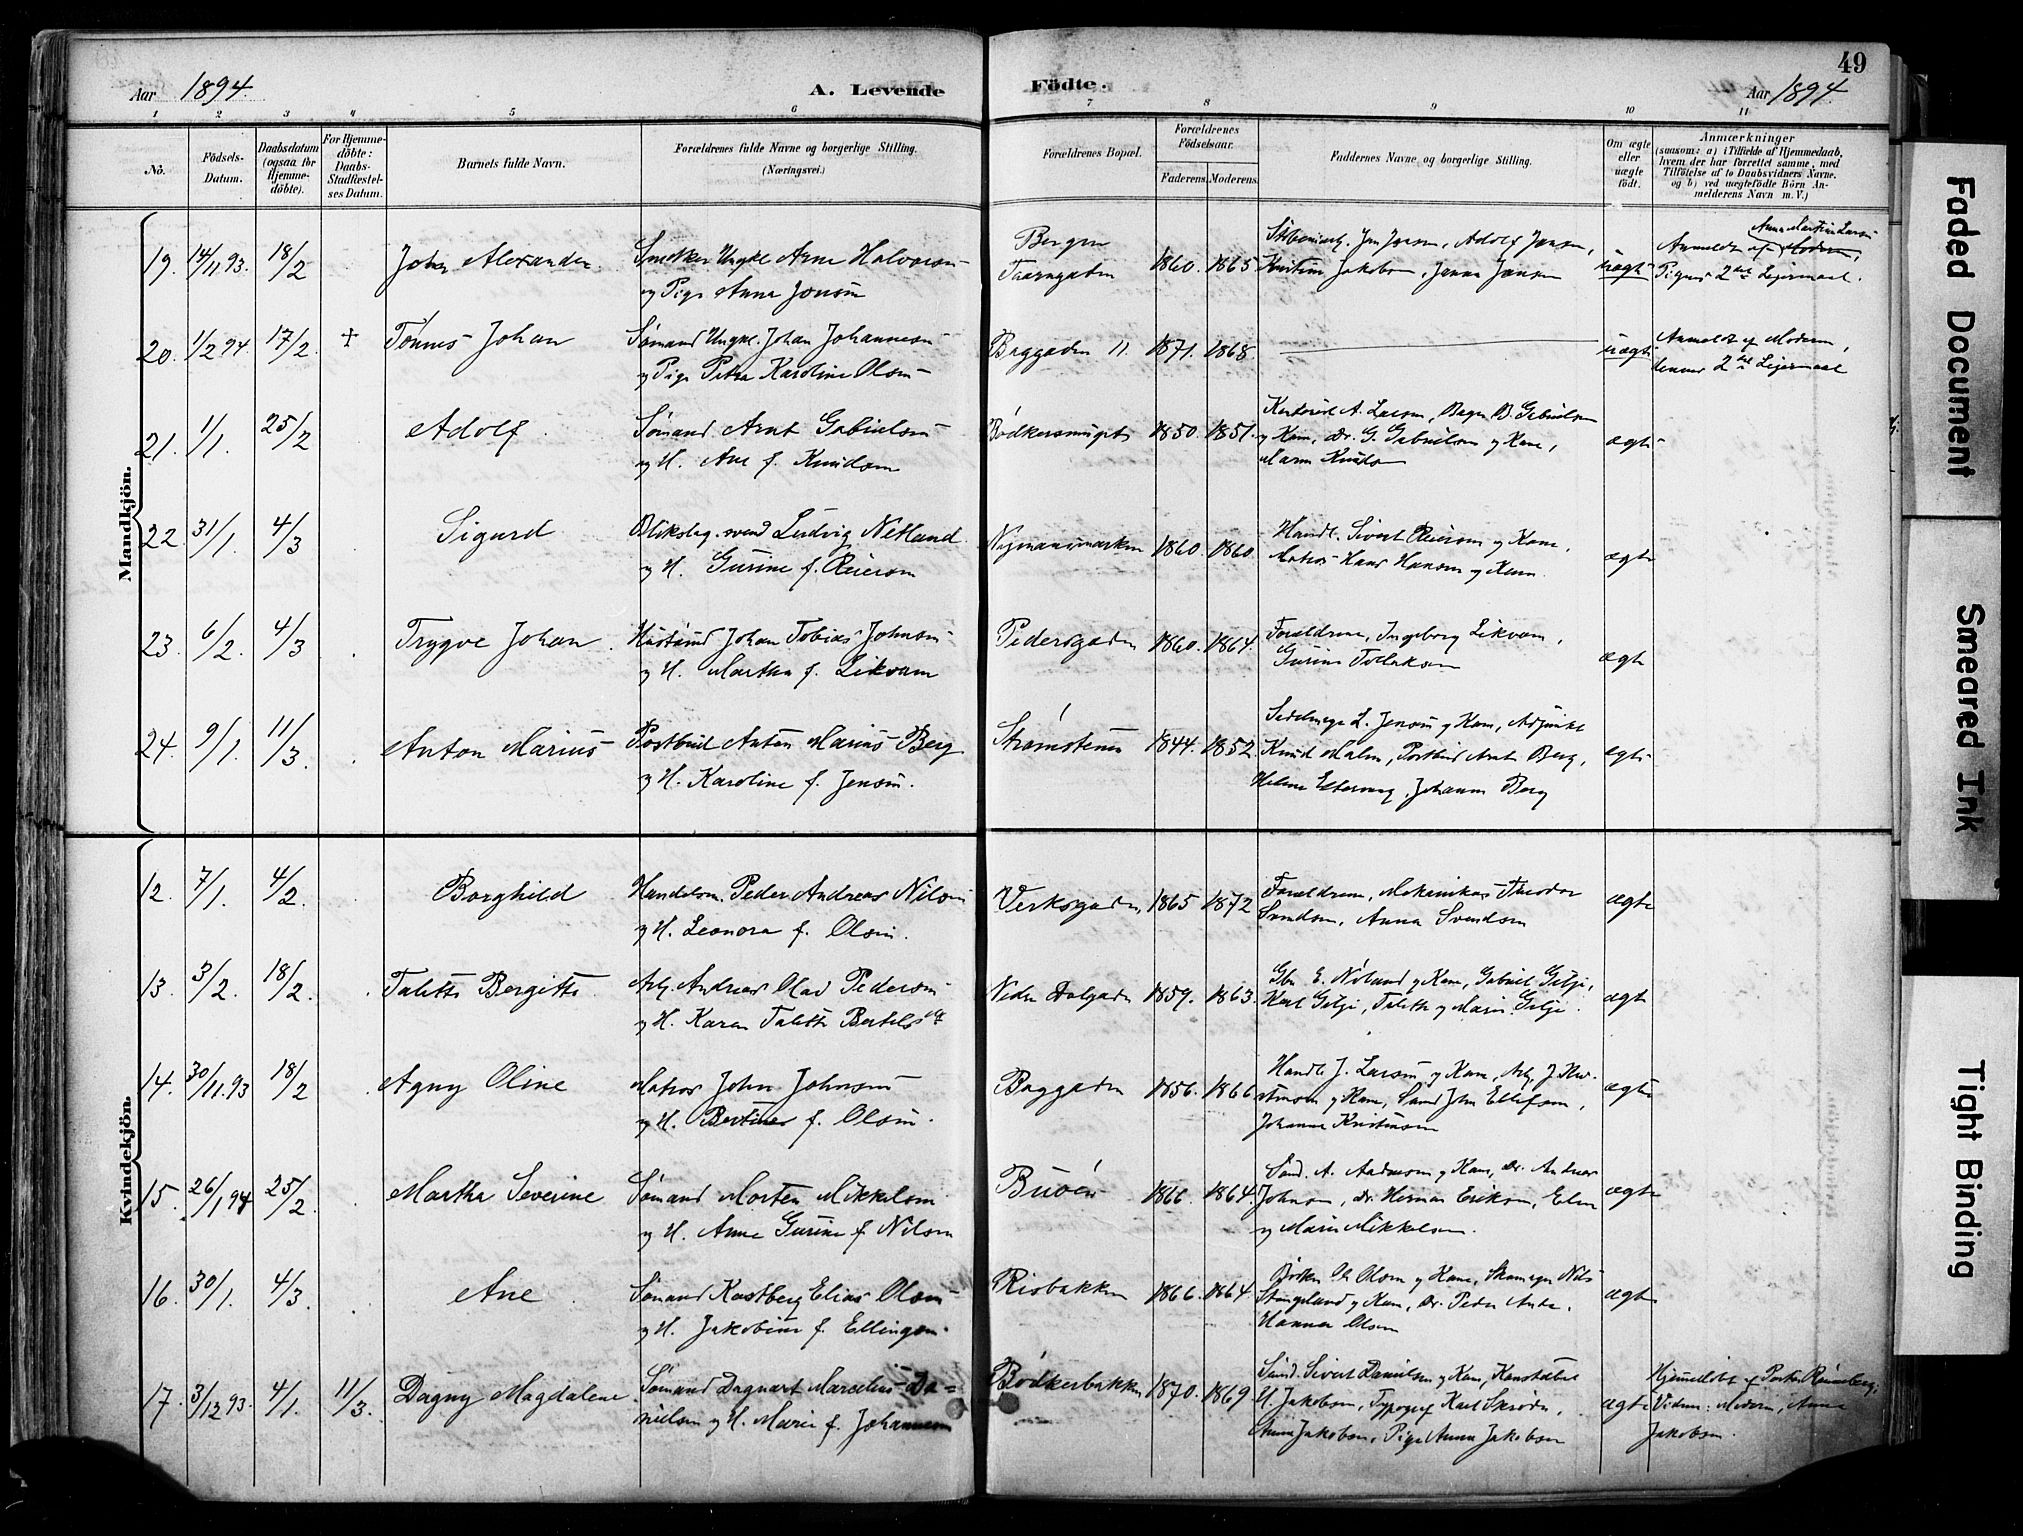 49
Aar 1894.
A. Levende
Födte.
Aar 1894.
1 2 3 4 5 6 7 8 9 10 11
No.
Födsels-
Datum.
Daabsdatum
(ogsaa for
Hjemme-
döbte).
For Hjemme-
döbte:
Daabs-
Stadfæstel-
ses Datum.
Barnets fulde Navn.
Forældrenes fulde Navne og borgerlige Stilling.
(Næringsvei.)
Forældrenes Bopæl.
Forældrenes
Födselsaar.
Faderens. Moderens.
Faddernes Navne og borgerlige Stilling.
Om ægte
eller
uægte
født.
Anmærkninger
(saasom: a) i Tilfælde af Hjemmedaab,
hvem der har forrettet samme, med
Tilföielse af to Daabsvidners Navne,
og b) ved uægtefödte Börn An-
melderens Navn m. V.)
Mandkjön.
19. 14/11 93. 18/2 John Alexander. Smedker Ungkl Arne Halvorsen
og Pige Anna Jensen
Bergen
Taarngaden 1860. 1865
Jansen, Adolf Jansen,
Kristine Jakobsen, Janna Jansen
uægte
Anna Martine Larsen
Anmeldt af Moderen,
Pigens 2det Leiermaal.
20. 1/2 94. 17/2. + Tønnes Johan Sømand Ungkl. Johan Johannesen
og Pige Petra Karoline Olsen
Baggaden 11. 1871. 1868.
uægte
Anmeldt af Moderen,
hennes 2det Leiermaal
21. 1/1. 25/2 Adolf. Sømand Arnt Gabrielsen
og H. Ane f. Knudsen
Bødkersmuget 1850. 1851.
A. Larsen, B. Gabrielsen
og Kone, Do. G. Gabrielsen og Kone,
Maren Knudsen
ægte
22. 31/1. 4/3 Sigurd Blikslag. svend Ludvig Netland
og H. Gurine f. Reiersen
Nymansmarken 1860. 1860.
Handl. Sivert Reiersen og Kone,
Matros Hans Hansen og Kone.
ægte
23. 6/2. 4/3 Trygve Johan. Johan Tobias Johnsen
og H. Martha f. Likvam
Pedersgaden 1860. 1864.
Forældrene, Ingeborg Likvam,
Gurine Tollaksen
ægte
24. 9/1. 11/3. Anton Marius Postbud Anton Marius Berg
og H. Karoline f. Jensen.
Strømstenen 1844. 1852
L. Jensen og Kone, Adjunkt
Knud Malm, Postbud Arnt Berg,
Helene, Johanne Berg
ægte
Kvindekjön.
12. 7/1. 4/2. Borghild Handelsm. Peder Andreas Nilsen
og H. Leonora f. Olsen.
Verksgaden, 1865 1872
Forældrene, Mekanikus Theodor
Svendsen, Anna Svendsen
ægte
13. 3/2. 18/2. Talette Bergitte. Arb. Andreas Olai Pedersen
og H. Karen Talette Bertels
Nedre Dalgade 1859. 1863.
E. Nøland og Kone, Gabriel Gilje,
Karl Gilje, Talette og Marie Gilje.
ægte
14. 30/11.93 18/2 Agny Oline Matros John Johnsen
og H. Bertine f. Olsen.
Baggaden 1856. 1866
Handl. J. Larsen og Kone, Arb. J. Kri-
stensen og Kone, Sømd John Ellefsen,
Johanne Kristensen
ægte
15. 26/1 94 25/2. Martha Severine Sømand Morten Mikkelsen
og H. Anne Gurine f. Nilsen
Buøen 1866. 1864.
Sømd. A. Aadnesen og Kone, Do. Andreas
Johnsen, Do. Herman Eriksen, Elen
og Marie Mikkelsen.
ægte
16. 30/1. 4/3. Ane Sømand Kastberg Elias Olsen
og H. Jakobine f. Ellingsen.
Risbakken 1866. 1864.
Ole Olsen og Kone, Skomager Nils
Stangeland og Kone, Do. Peder
Hanna Olsen
ægte
17. 3/12 93. 4/1. 11/3. Dagny Magdalene. Sømand Dagnart Marcelius Da-
nielsen og H. Marie f. Johannesen
Bødkerbakken 1870. 1869
Sømd. Sivert Danielsen og Kone, Konstabel
H. Jakobsen, Typograf Karl Skrøder,
Anna Jakobsen, Pige Anna Jakobsen
ægte
Hjemmedøbt af Pastor Rønneberg.
Vidner: Moderen, Anna
Jakobsen.
Faded Document
Smeared Ink
Tight Binding